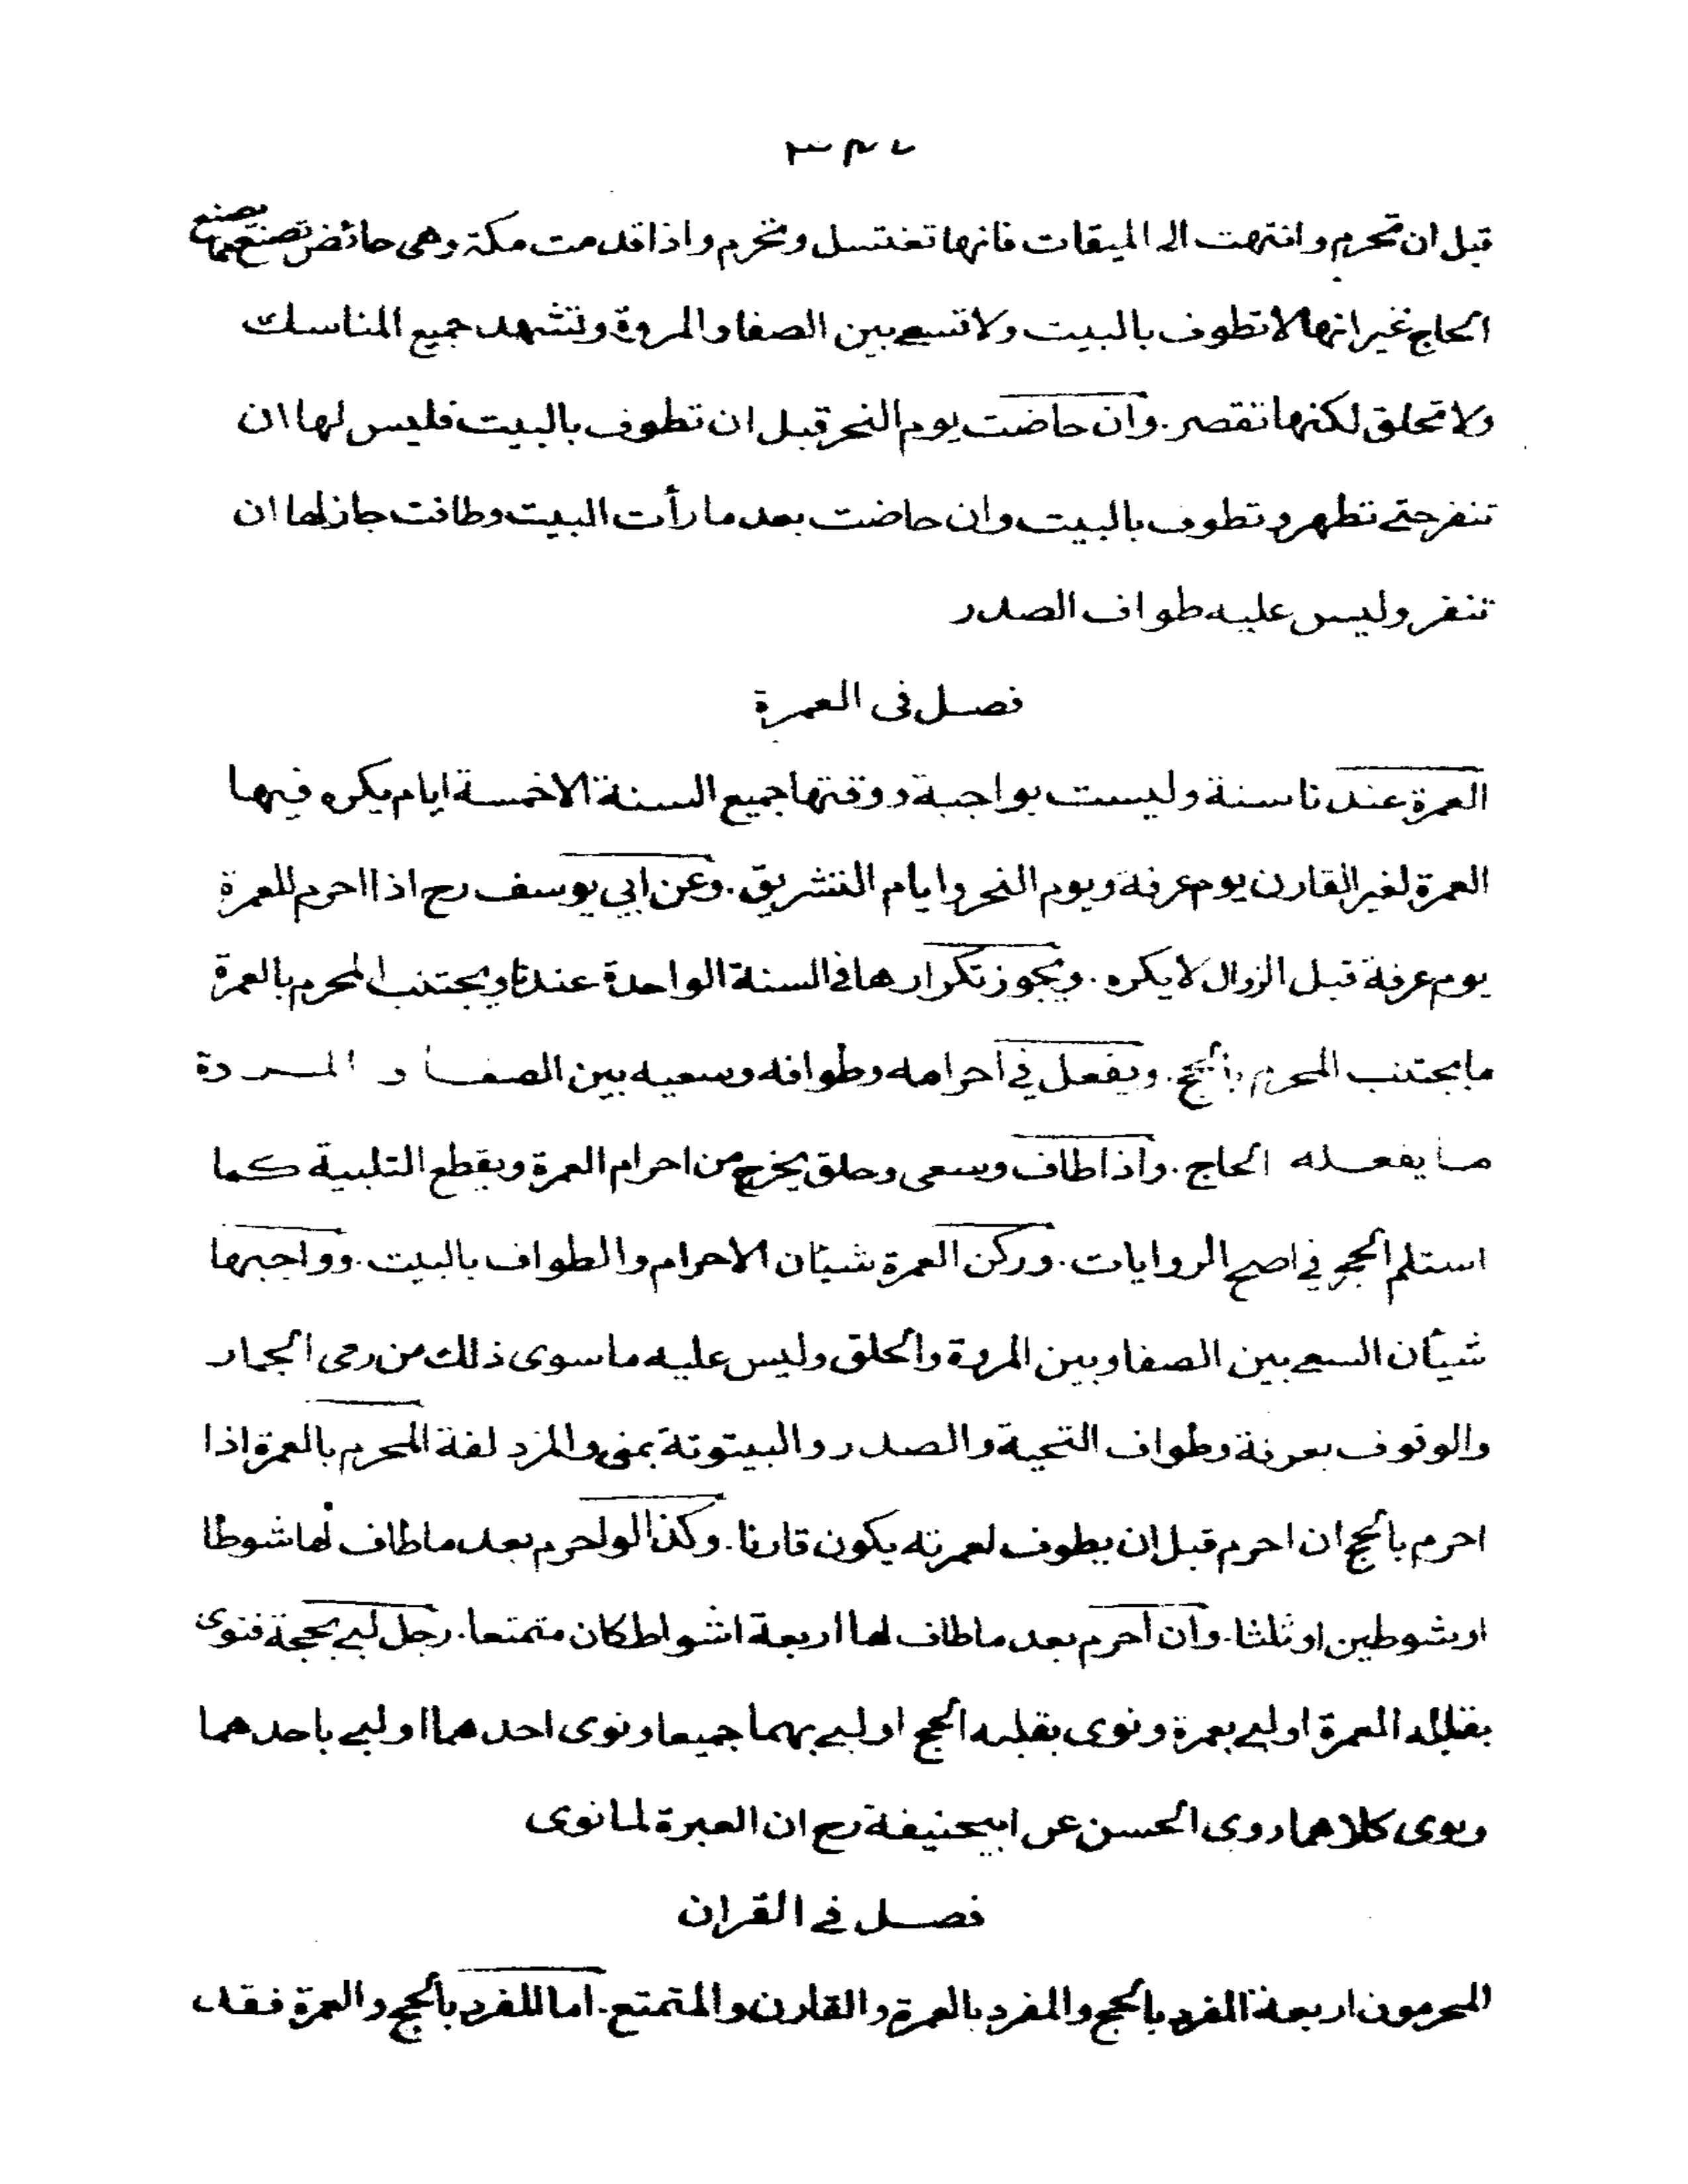 قبل ان تحرم وانتهت الى الميقات فانها تغتسل وتحرم واذا قدمت مكة وهى حائض تصنع كما يصنع
الحاج غير انها لا تطوف بالبيت ولا تسعى بين الصفا والمروة وتشهد جميع المناسك
ولا تحلق لكنها تقصر. وان حاضت يوم النحر قبل ان تطوف بالبيت فليس لها ان
تنفر حتى تطهر وتطوف بالبيت وان حاضت بعد ما رأت البيت وطافت جاز لها ان
تنفر وليس عليه طواف الصدر
فصل فى العمرة
العمرة عندنا سنة وليست بواجبة ووقتها جميع السنة الا خمسة ايام يكره فيها
العمرة لغير القارن يوم عرفة ويوم النحر وايام التشريق. وعن ابي يوسف رح اذا احرم للعمرة
يوم عرفة قبل الزوال لا يكره. ويجوز تكرارها في السنة الواحدة عندنا ويجتنب المحرم بالعمرة
ما يجتنب المحرم بالحج. ويفعل في احرامه وطوافه وسعيه بين الصفا و المروة
ما يفعله الحاج. واذا طاف وسعى وحلق يخرج من احرام العمرة ويقطع التلبية كما
استلم الحجر في اصح الروايات. وركن العمرة شيئان الاحرام والطواف بالبيت. وواجبها
شيئان السعى بين الصفا وبين المروة والحلق وليس عليه ما سوى ذلك من رمى الجمار
والوقوف بعرفة وطواف التحية والصدر والبيتوتة بمنى والمزدلفة المحرم بالعمرة اذا
احرم بالحج ان احرم قبل ان يطوف لعمرته يكون قارنا. وكذا لو احرم بعد ما طاف لها شوطا
او شوطين او ثلثا. وان احرم بعد ما طاف لها اربعة اشواط كان متمتعا. رجل لبى بحجة فنوى
بقلبه العمرة او لبى بعمرة ونوى بقلبه الحج او لبى بهما جميعا ونوى احدهما او لبى باحدهما
ونوى كلاهما روى الحسن عن ابيحنيفة رح ان العبرة لما نوى
فصل في القران
المحرمون اربعة المفرد بالحج والمفرد بالعمرة والقارن والمتمتع. اما المفرد بالحج والعمرة فقد